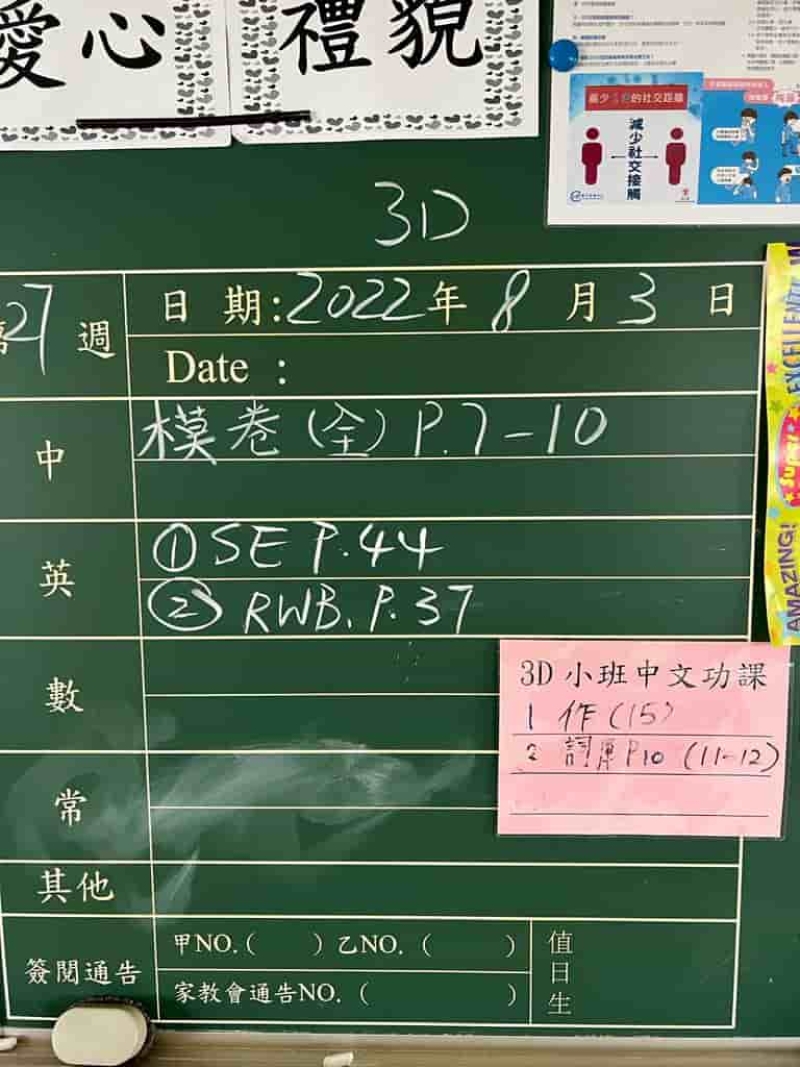 愛心
禮貌
減少社交接觸
3D
27 週
日 期:2022年 8 月 3 日
Date :
中
模卷(全) P.7-10
英
①SE P.44
② RWB. P.37
數
常
其他
簽閱通告
甲NO.( ) 乙NO. ( )
家教會通告NO. ( )
值日生
3D 小班中文功課
1 作(15)
2 詞庫 P10 (11-12)
EXCELLENT
Super
AMAZING!